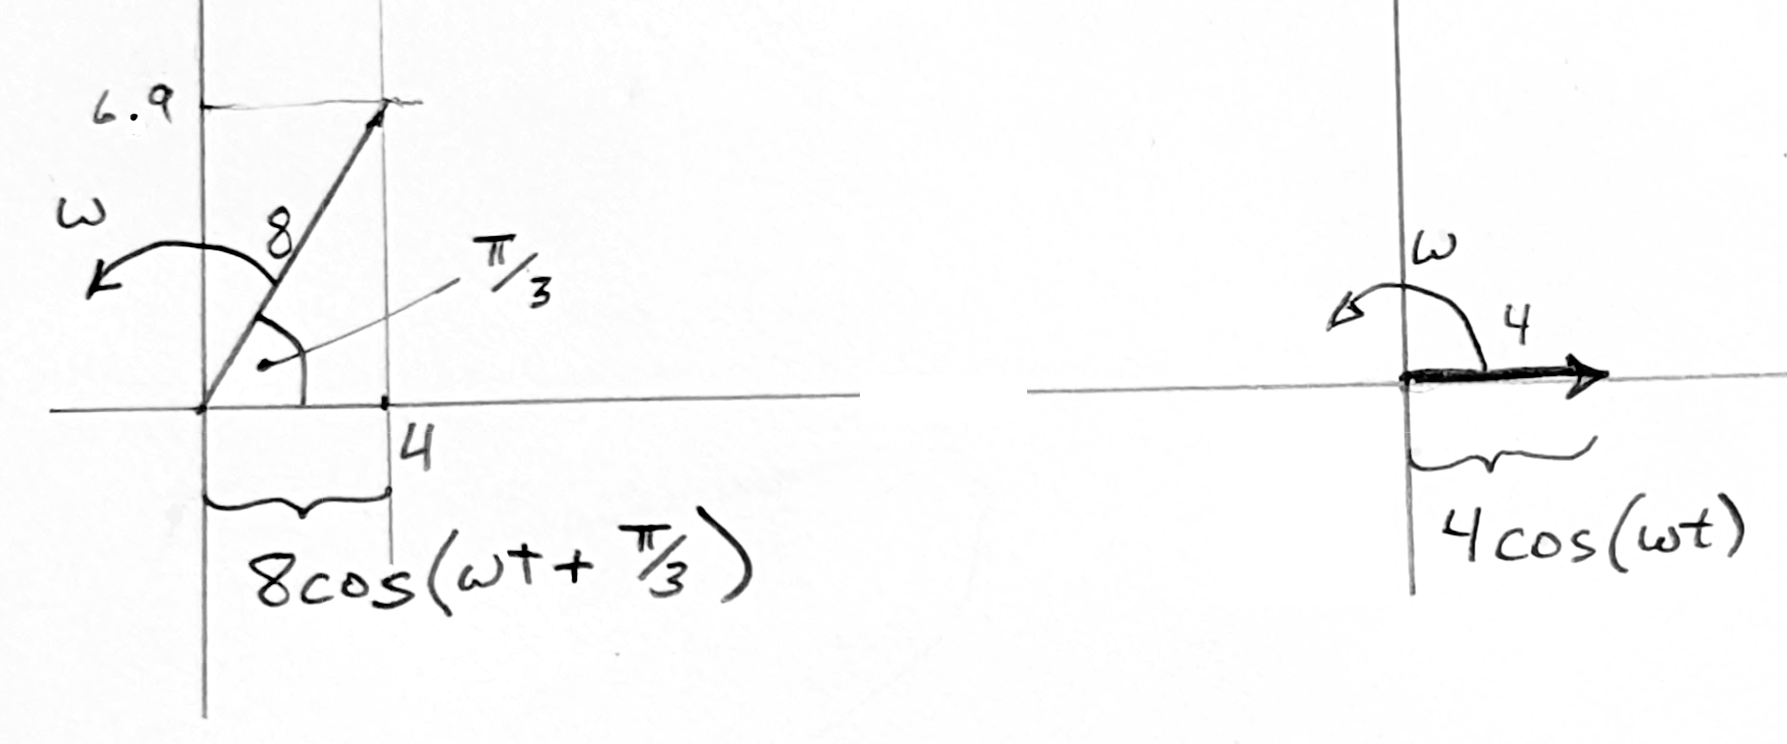 6.9
ω
8
π/3
4
8cos(ωt + π/3)
ω
4
4cos(ωt)